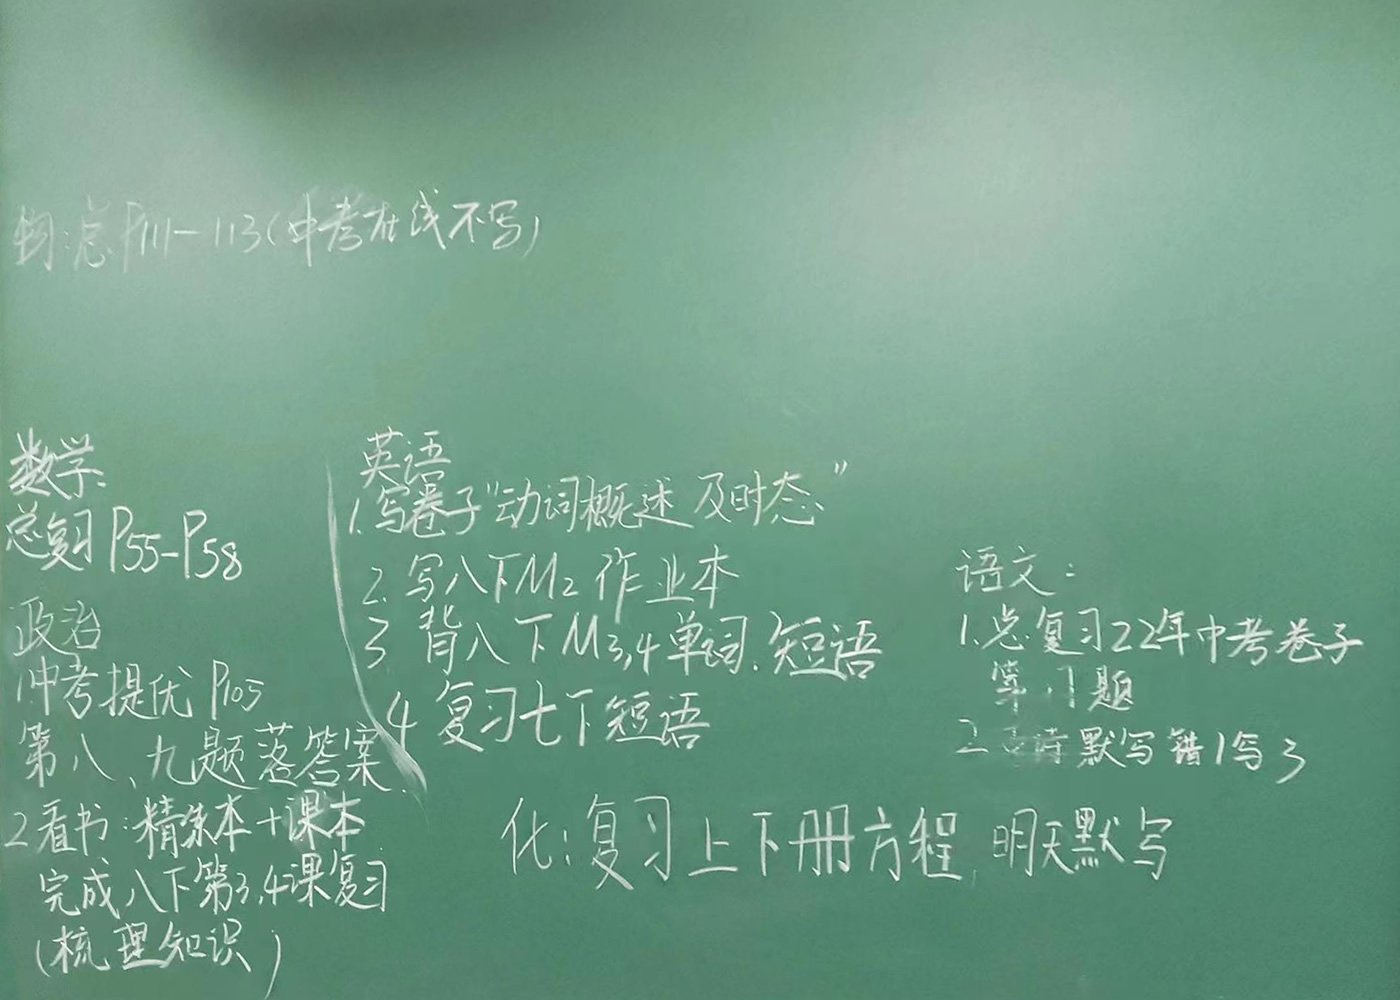 物:总P111-113(中考在线不写)
数学
总复习P55-P58
政治
1中考提优P105
第八、九题落答案.
2看书:精练本+课本
完成八下第3,4课复习
(梳理知识)
英语
1.写卷子"动词概述及时态"
2.写八下M2作业本
3 背八下M3,4单词.短语
4 复习七下短语
语文:
1.总复习22年中考卷子
第17题
2.默写错1写3
化:复习上下册方程,明天默写